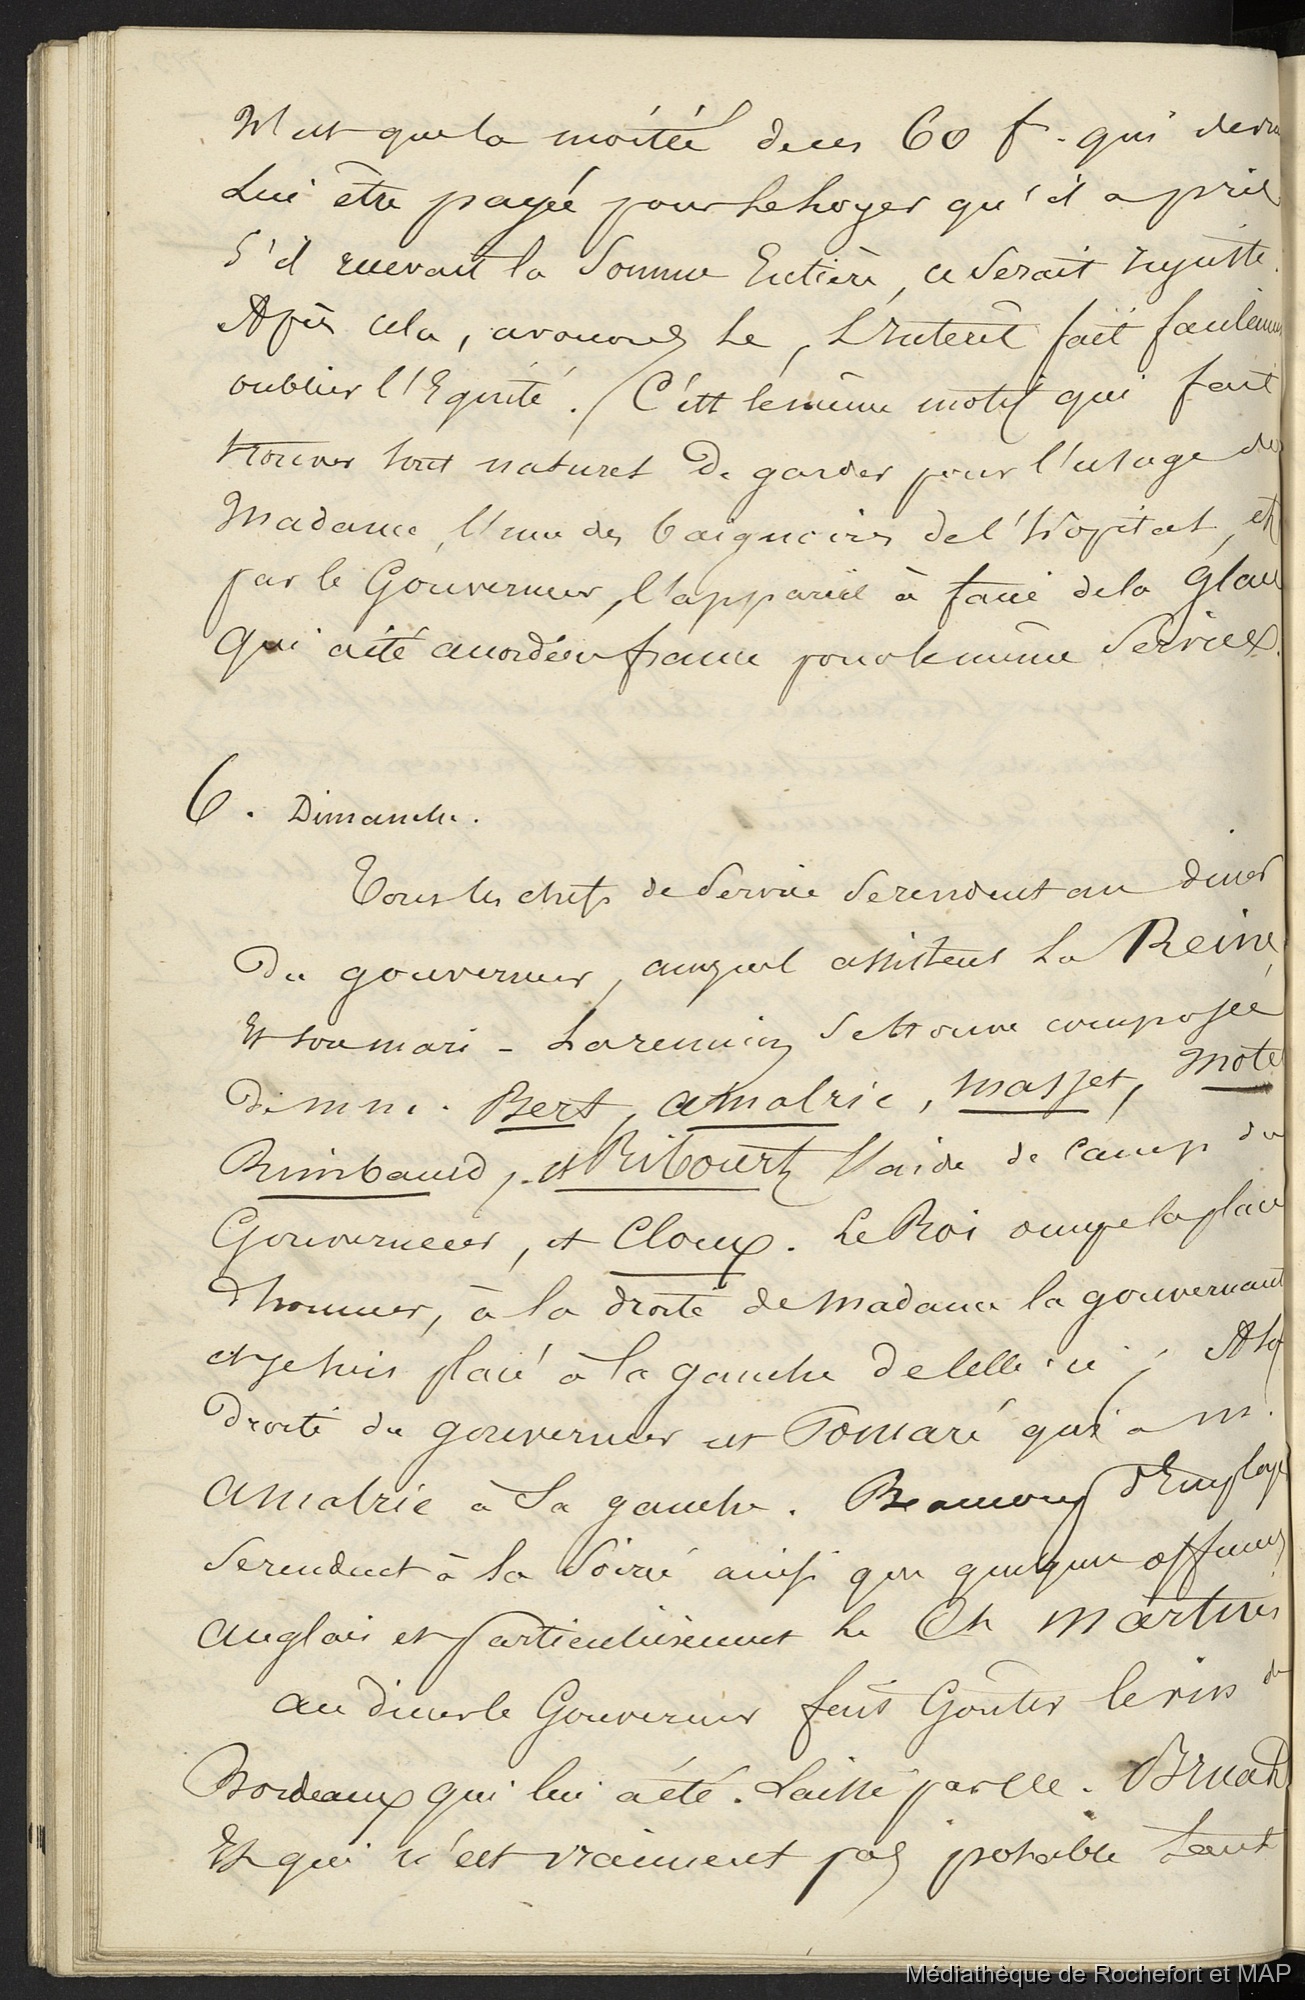 n'est que la moitié de ces 60 f. qui devra
Lui être payée pour le loyer qu'il a pris
S'il recevait la Somme Entière, ce serait injuste.
Après cela, avouons le, L'Intérêt fait facilement
oublier l'Equité. C'est le même motif qui fait
trouver tout naturel De garder pour l'usage de
Madame, l'une des baignoires de l'hôpital, et
par le Gouverneur, l'appareil à faire de la glace
qui a été accordé en france pour le même Service.
6. Dimanche.
Tous les chefs de Service Se rendent au diner
Du gouverneur, auquel assistent La Reine
Et son mari - La reunion Se trouve composée
De mm. Bert, Amalric, Masset,
Rimbaud, et Ribourt l'aide de camp du
Gouverneur, et Cloux. Le Roi occupe la place
d'honneur, à la droite de Madame la gouvernante
et je suis placé à la gauche de Celle-ci; A la
Droite du gouverneur est Pomaré qui a M.
Amalric à Sa gauche. Beaucoup d'Employés
Se rendent à la Soirée ainsi que quelques officiers
Anglais et particulièrement le Ch Martin
Au Diner le Gouverneur fait Goûter le vin de
Bordeaux qui lui a été Laissé par Mr. Bruat
Et qui n'est vraiment pas potable tant
Médiathèque de Rochefort et MAP